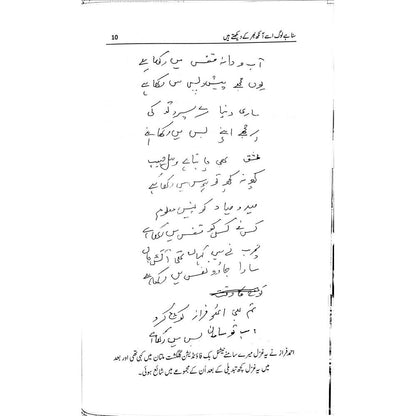 سنا ہے لوگ اسے آنکھ بھر کے دیکھتے ہیں
10
آب و دانہ قفس میں رکھا ہے
یوں مجھے پیش و پس میں رکھا ہے
ساری دنیا کے سپرد کی
پر مجھے اپنے بس میں رکھا ہے
عشق بھی چاہتا ہے وصلِ حبیب
کچھ نہ کچھ تو ہوس میں رکھا ہے
صید و صیاد کو نہیں معلوم
کس نے کس کو قفس میں رکھا ہے
خوب نے میں کہاں تھی آتش
سارا جادو نفس میں رکھا ہے
تم بھی احمد فراز کوچ کرو
اب تو سامان بس میں رکھا ہے
احمد فراز نے یہ غزل میرے سامنے نیشنل بک فاؤنڈیشن گلگشت ملتان میں کہی تھی اور بعد
میں یہ غزل کچھ تبدیلی کے بعد اُن کے مجموعے میں شائع ہوئی۔